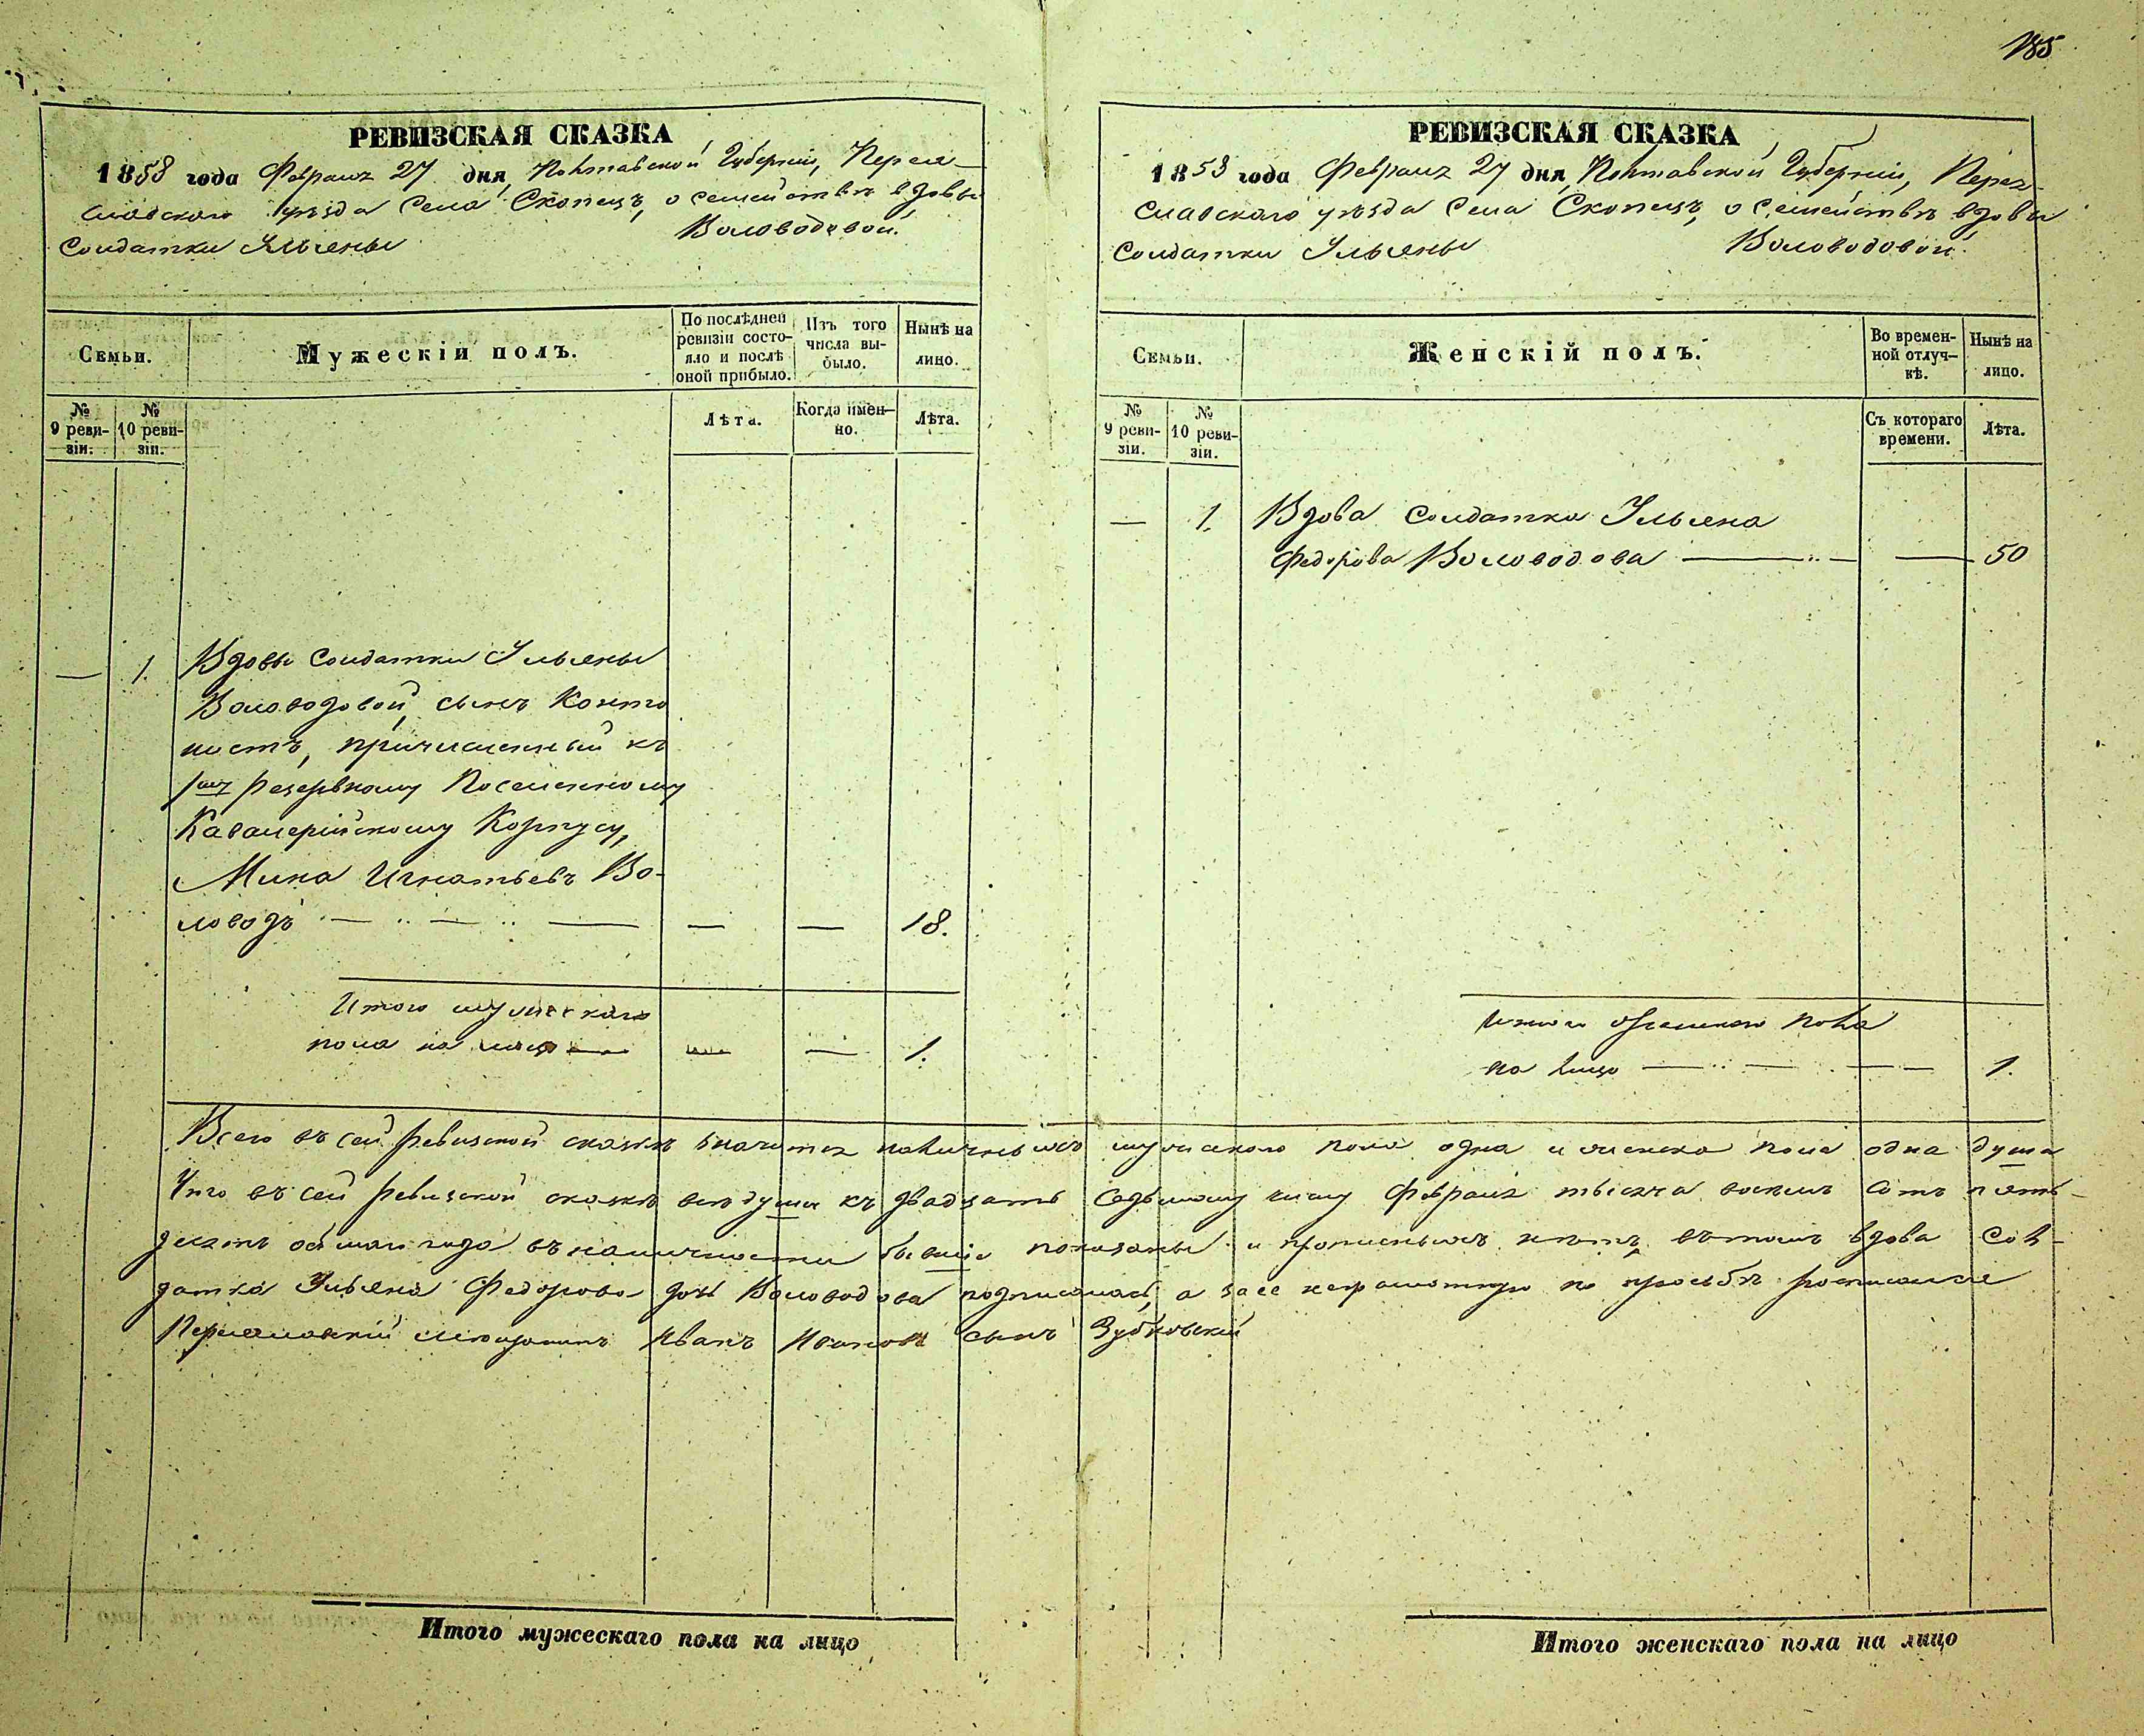 185
РЕВИЗСКАЯ СКАЗКА
1858 года Февраля 27 дня, Полтавской Губерніи, Перея-
славскаго уѣзда Села Скопецъ, о семействѣ вдовы
Солдатки Ульяны Воловодовой.
Семьи.
Мужескій полъ.
По послѣдней ревизіи состо-яло и послѣ оной прибыло.
Изъ того числа вы-было.
Нынѣ на лицо.
№ 9 реви-зіи.
№ 10 реви-зіи.
Лѣта.
Когда имен-но.
Лѣта.
— 1. Вдовы Солдатки Ульяны
Воловодовой, сынъ Канто
нистъ, причисленный къ
1му резервному Поселенному
Кавалерійскому Корпусу,
Мина Игнатьевъ Во-
ловодъ — — — — — 18.
Итого мужескаго
пола на лицо — — — 1.
РЕВИЗСКАЯ СКАЗКА
1858 года Февраля 27 дня, Полтавской Губерніи, Перея-
славскаго уѣзда Села Скопецъ, о семействѣ вдовы
Солдатки Ульяны Воловодовой.
Семьи.
Женскій полъ.
Во времен-ной отлуч-кѣ.
Нынѣ на лицо.
№ 9 реви-зіи.
№ 10 реви-зіи.
Съ котораго времени.
Лѣта.
— 1. Вдова Солдатка Ульяна
Федорова Воловодова — — — 50
Итого женскаго пола
на лицо — — — — 1.
Всего въ сей ревизской сказкѣ значится наличныхъ мужскаго пола одна и женска пола одна душа
Что въ сей ревизской сказкѣ всѣ души къ двадцать седьмому числу Февраля тысяча восемь сотъ пять-
десятъ осьмаго года въ наличности бывшіе показаны и прописныхъ нѣтъ, вътомъ вдова Сол-
датка Ульяна Федорова дочь Воловодова подписалась, а за ее неграмотную по просьбѣ росписался
Переяславскій мѣщанинъ Иванъ Ивановъ сынъ Зубковскій
Итого мужескаго пола на лицо
Итого женскаго пола на лицо